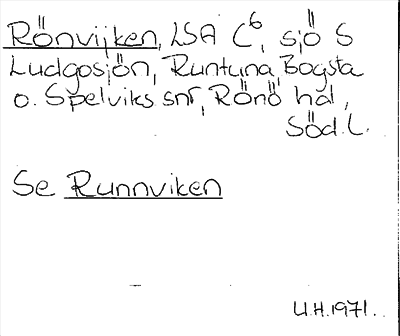 Rönvijken, LSA C6, sjö S
Ludgosjön, Runtuna, Bogsta
o. Spelviks snr, Rönö hd,
Söd. L.
Se Runnviken
U.H. 1971.